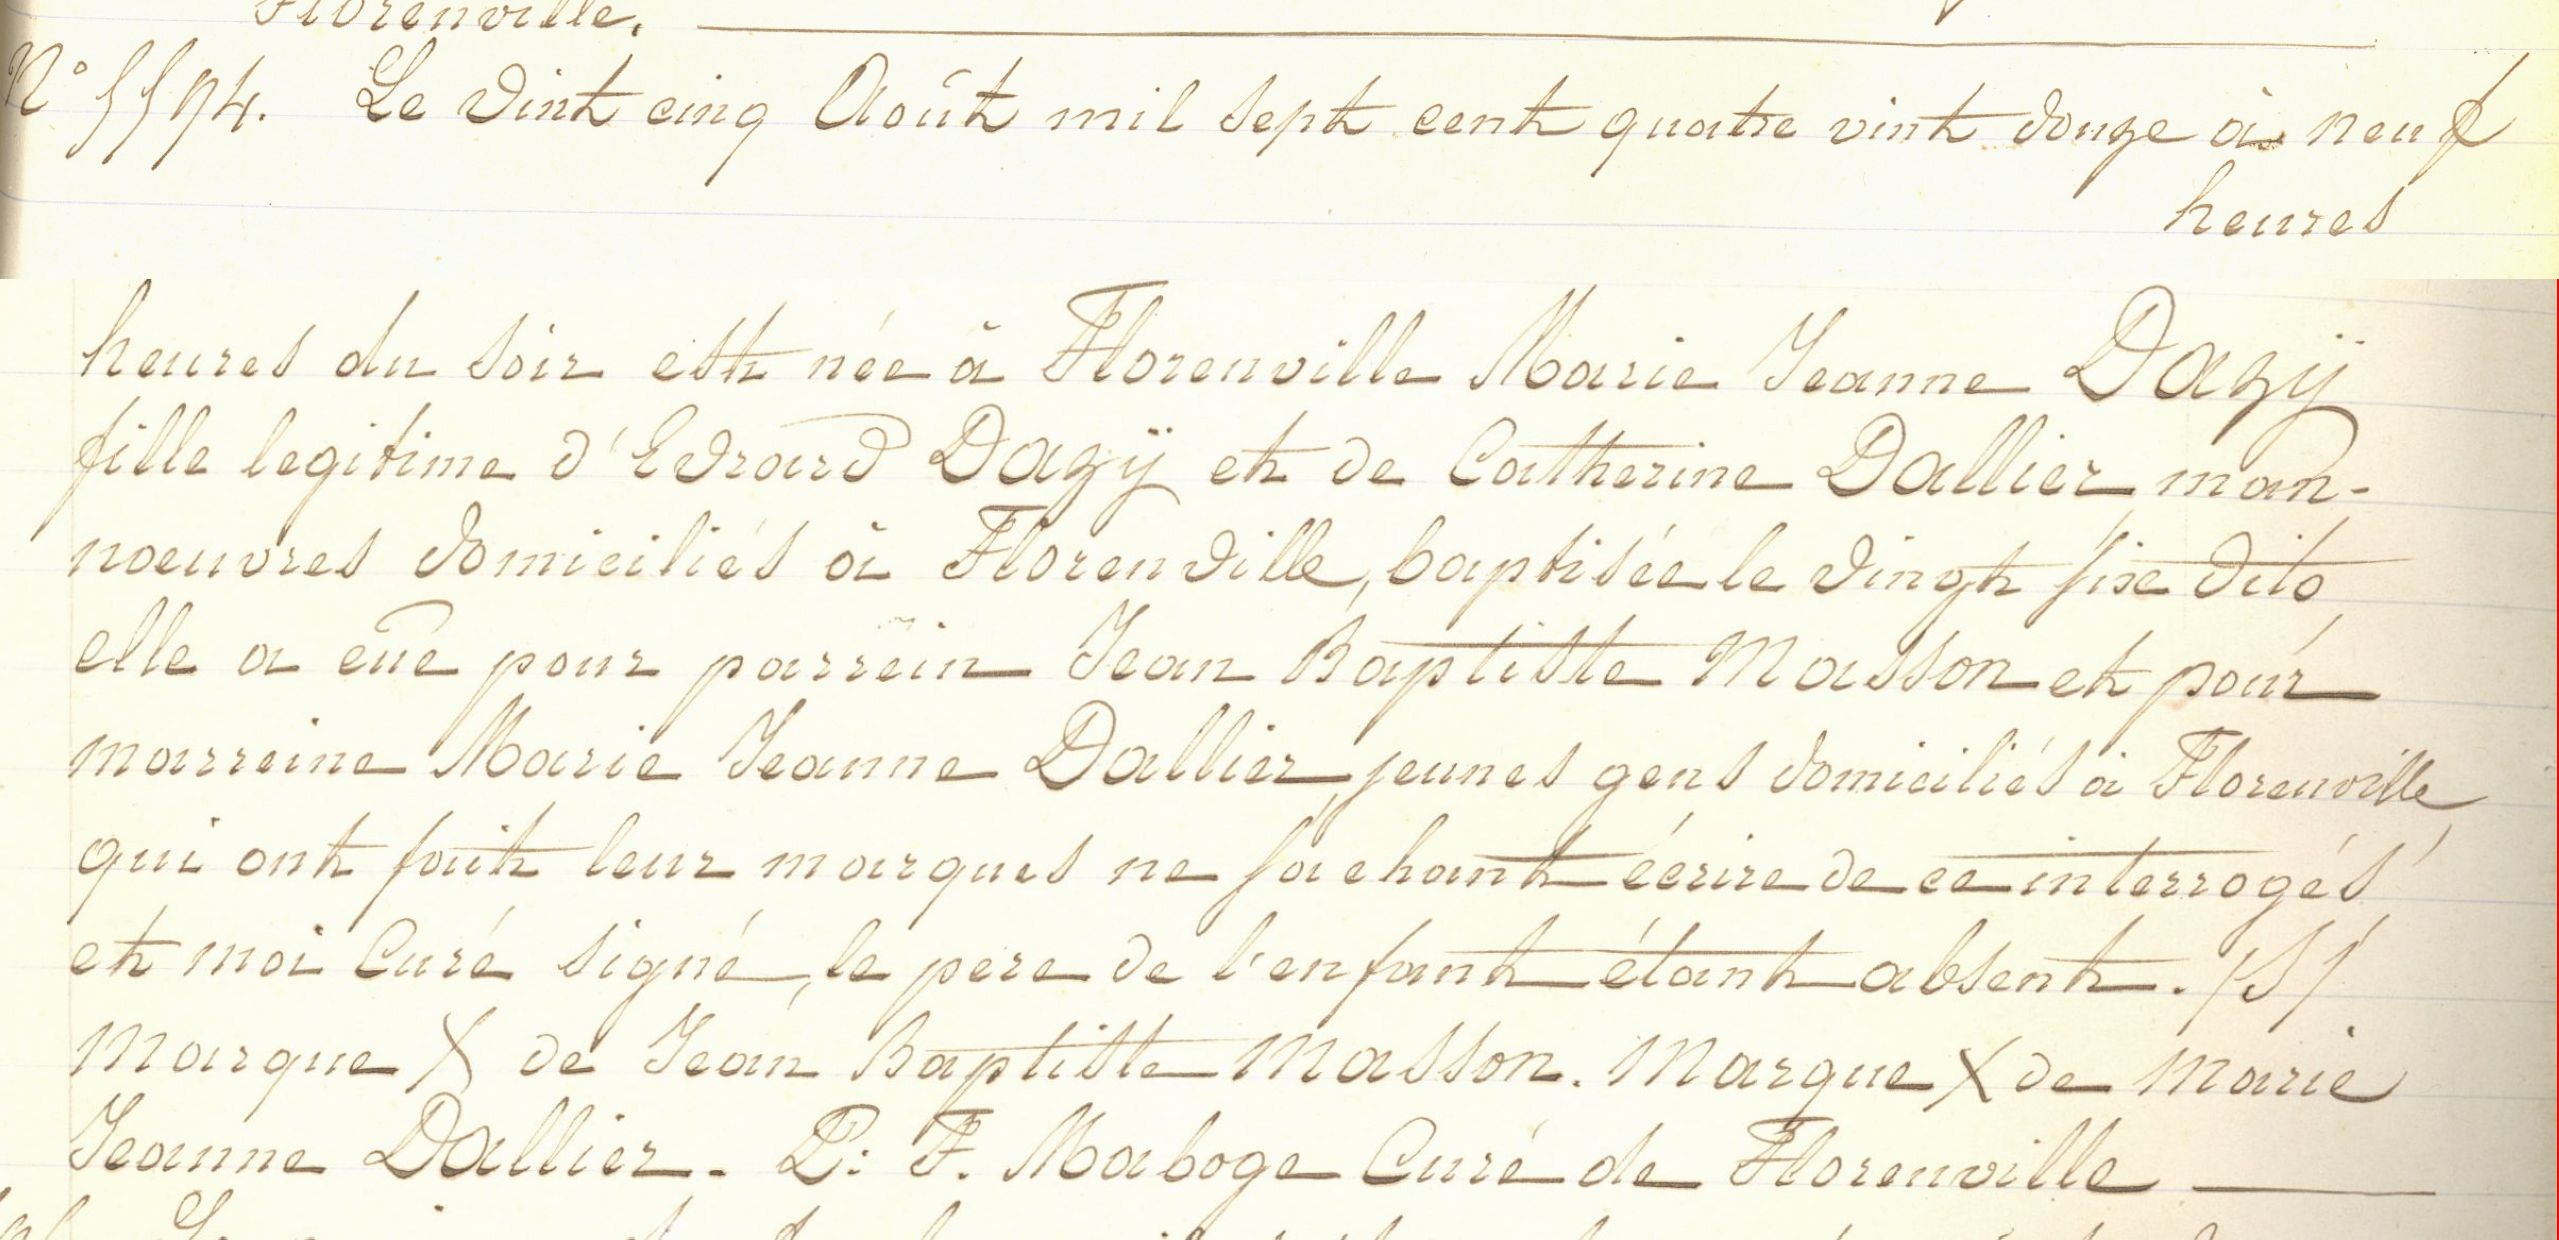 Florenville.
N° 5574. Le vint cinq Août mil sept cent quatre vint douze à neuf
heures
heures du soir est née à Florenville Marie Jeanne Dazÿ
fille legitime d'Edrard Dazÿ et de Catherine Dallier, man-
noeuvres domiciliés à Florenville, baptisée le vingt six dito
elle a eüe pour parrein Jean Baptiste Masson et pour
marreine Marie Jeanne Dallier, jeunes gens domiciliés à Florenville
qui ont fait leur marques ne sachant écrire de ce interrogés
et moi Curé signé, le pere de l'enfant étant absent. /S/
Marque X de Jean Baptiste Masson. Marque X de Marie
Jeanne Dallier. P: F. Maboge Curé de Florenville